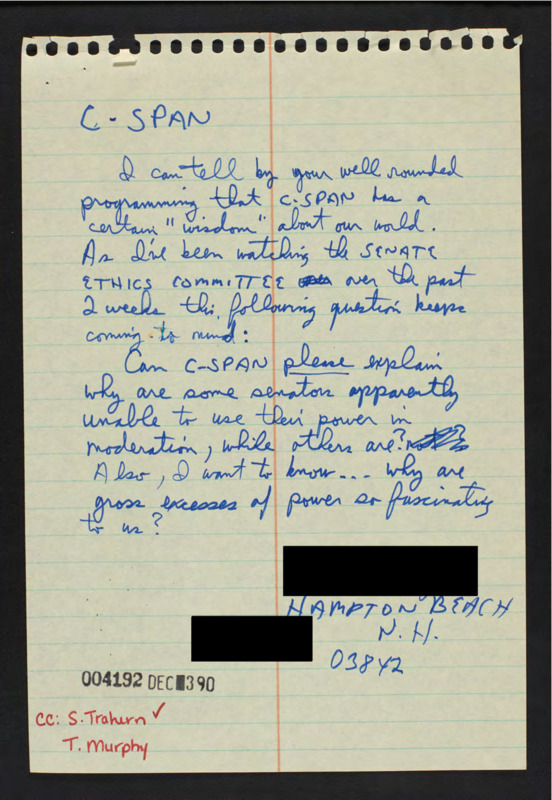 C-SPAN
I can tell by your well rounded
programming that C-SPAN has a
certain "wisdom" about our world.
As I've been watching the SENATE
ETHICS COMMITTEE over the past
2 weeks this following question keeps
coming to mind:
Can C-SPAN please explain
why are some senators apparently
unable to use their power in
moderation, while others are?
Also, I want to know... why are
gross excesses of power so fascinating
to us?
HAMPTON BEACH
N.H.
03842
004192 DEC 3 90
cc: S. Trahern ✓
T. Murphy